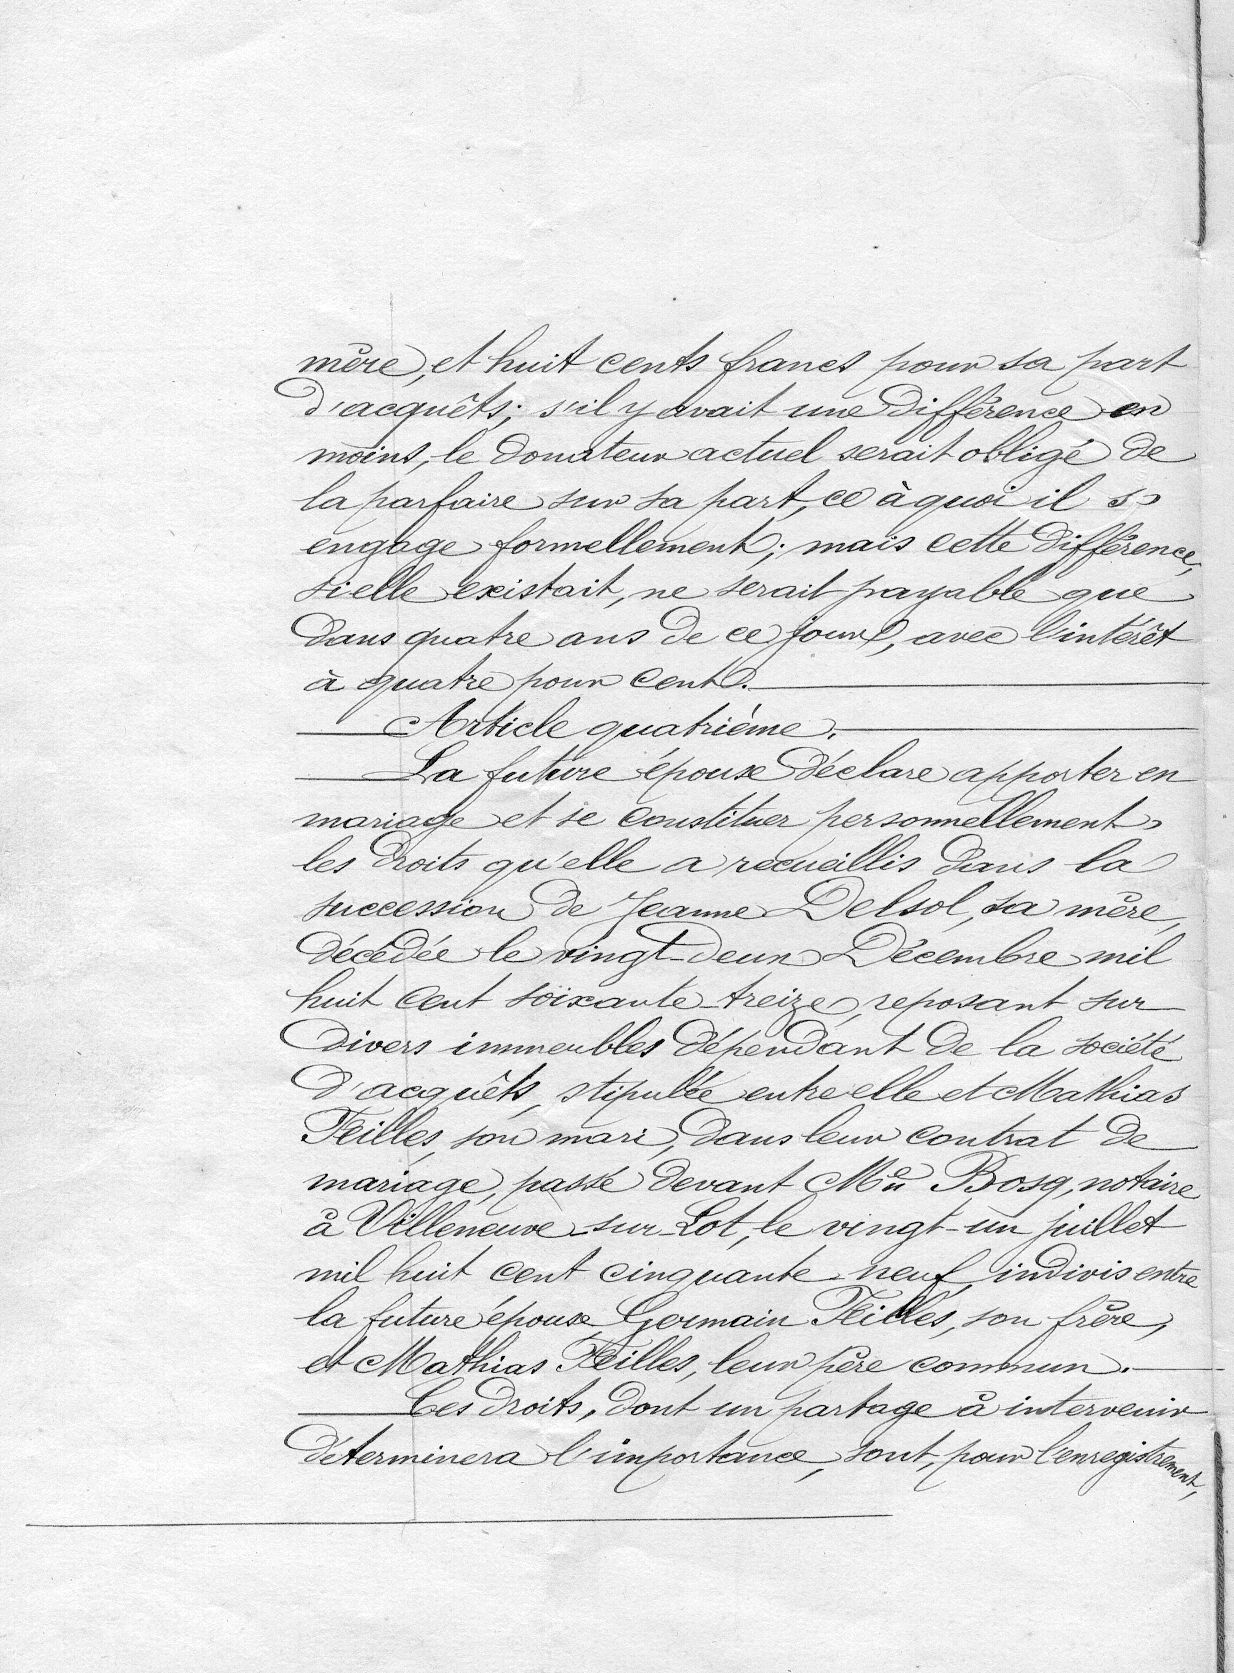 mère, et huit cents francs pour sa part
d'acquêts; s'il y avait une différence en
moins, le donateur actuel serait obligé de
la parfaire sur sa part, ce à quoi il s'
engage formellement; mais cette différence,
si elle existait, ne serait payable que
dans quatre ans de ce jour, avec l'intérêt
à quatre pour cent.
Article quatrième.
La future épouse déclare apporter en
mariage et se constituer personnellement
les droits qu'elle a recueillis dans la
succession de Jeanne Delsol, sa mère,
décédée le vingt-deux Décembre mil
huit cent soixante-treize, reposant sur
divers immeubles dépendant de la société
d'acquêts, stipulée entre elle et Mathias
Feilles, son mari, dans leur contrat de
mariage, passé devant Me Bosq, notaire
à Villeneuve-sur-Lot, le vingt-un juillet
mil huit cent cinquante-neuf, indivis entre
la future épouse, Germain Feilles, son frère,
et Mathias Feilles, leur père commun.
Ces droits, dont un partage à intervenir
déterminera l'importance, sont, pour l'enregistrement,